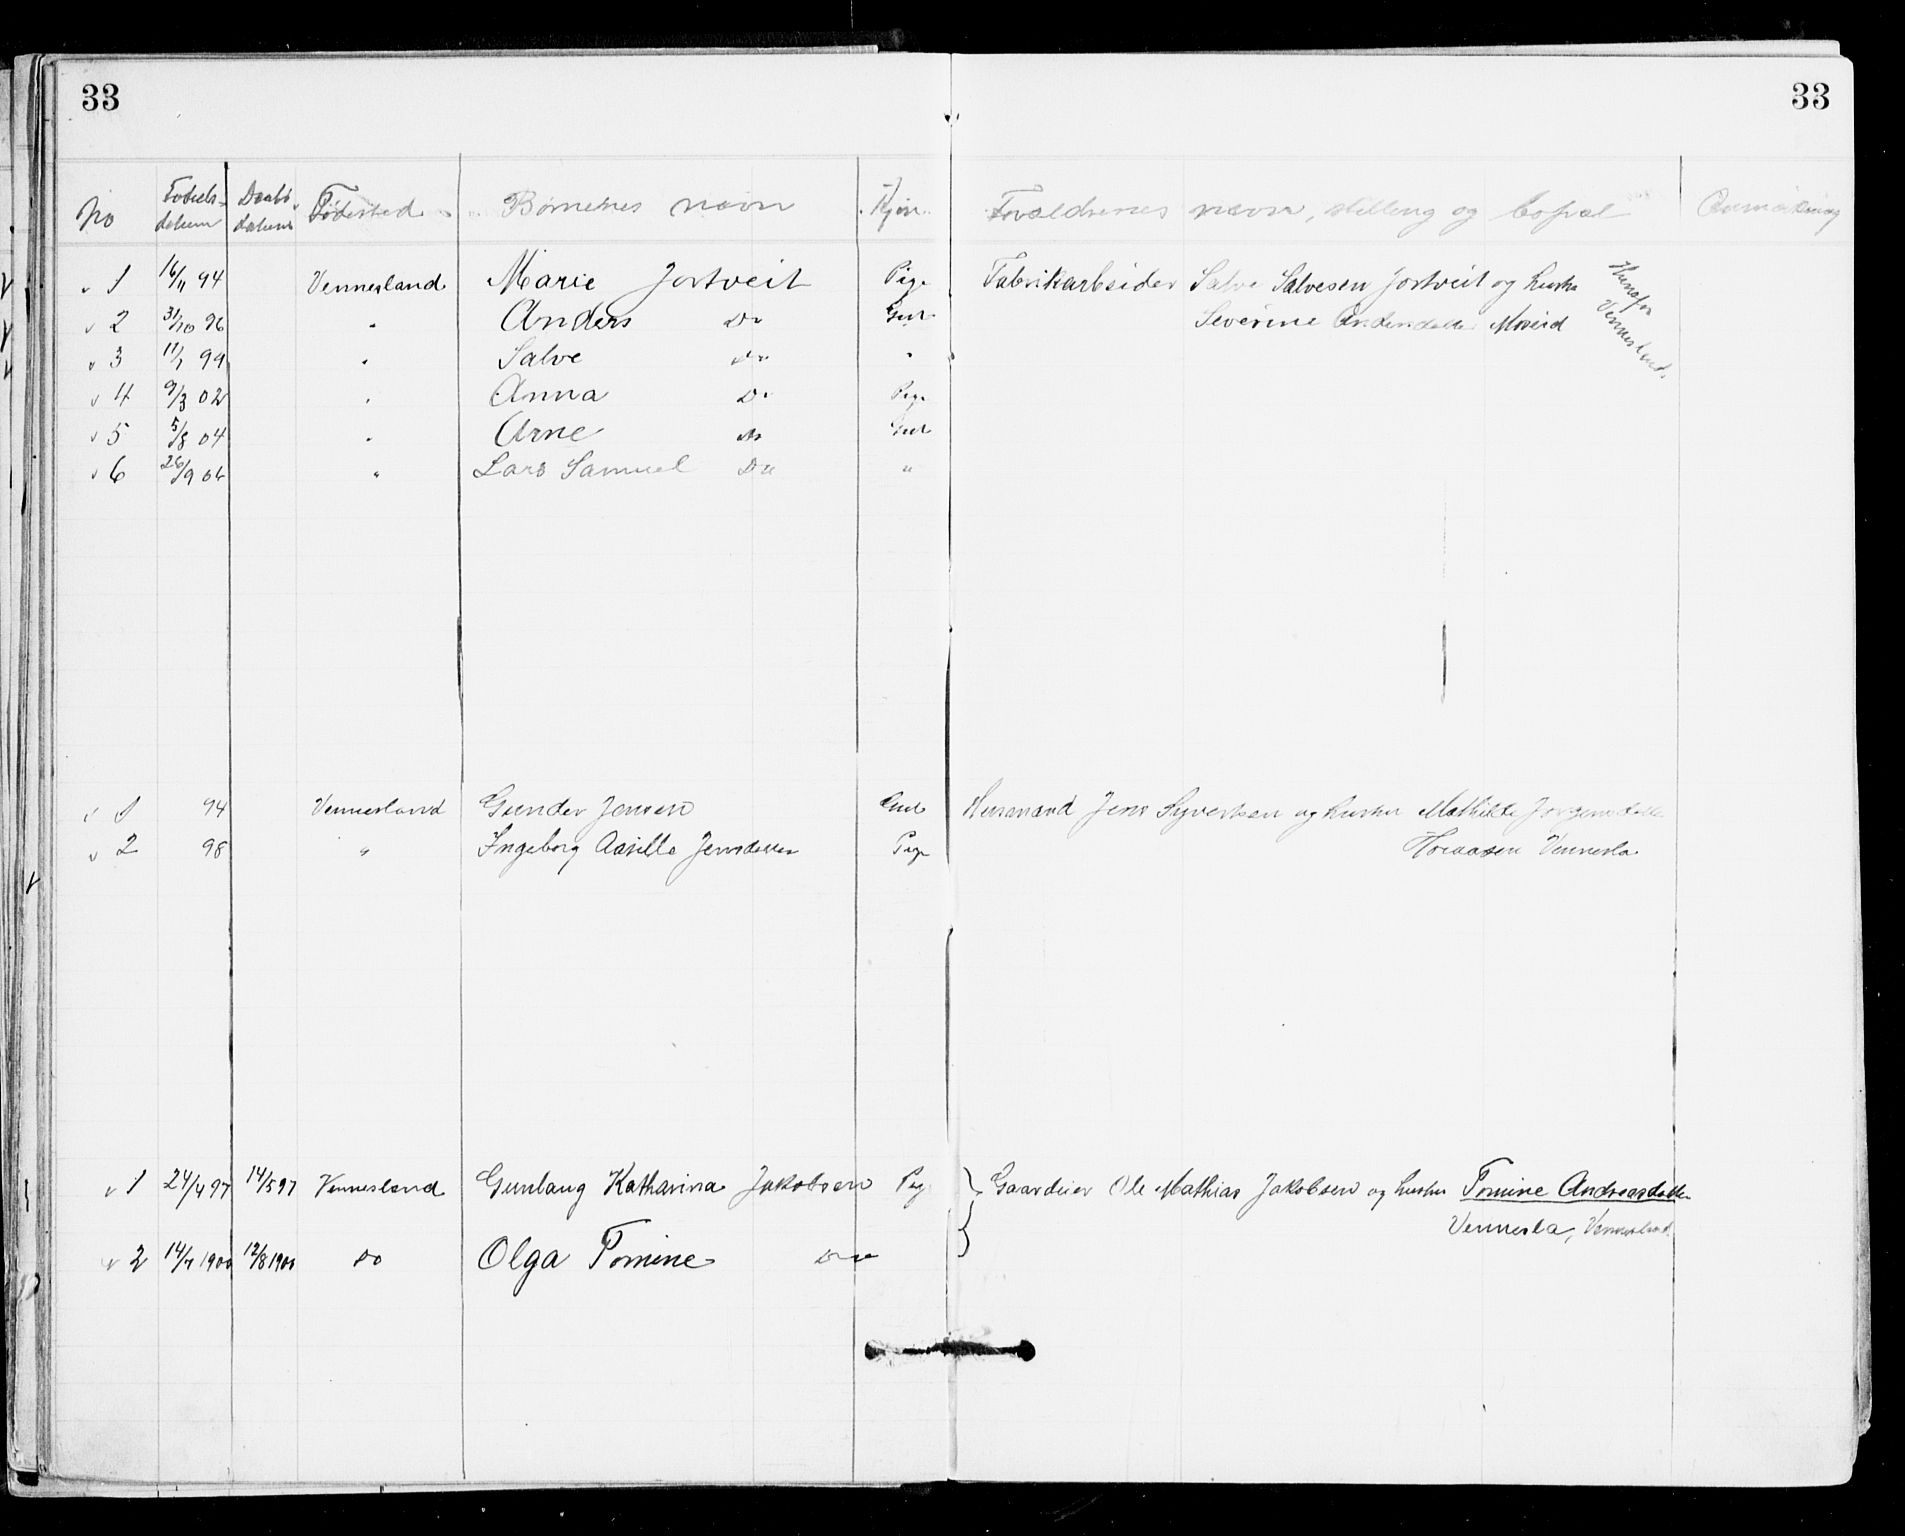 33 33
No Fødsels-datum Daabs-datum Fødested Børnenes navn Kjøn Forældrenes navn, stilling og bopæl Anmærkning
v 1 16/11 94 Vennesland Marie Jortveit Pige Fabrikarbeider Salve Salvesen Jortveit og hustru
v 2 31/10 96 " Anders Do Gut Severine Andersdatter Moseid
Vennesland
v 3 11/7 99 " Salve Do "
v 4 9/3 02 " Anna Do Pige
v 5 5/8 04 " Arne Do Gut
v 6 26/9 06 " Lars Samuel Do "
v 1 94 Vennesland Gunder Jensen Gut Husmand Jens Syvertsen og hustru Mathilde Jørgensdatter
v 2 98 " Ingeborg Aasille Jensdatter Pige Vennesla
v 1 24/4 97 14/5 97 Vennesland Gunlaug Katharina Jakobsen Pig } Gaardeier Ole Mathias Jakobsen og hustru Tomine Andreasdatter
Vennesla, Vennesland
v 2 14/7 1900 12/8 1900 Do Olga Tomine Do }